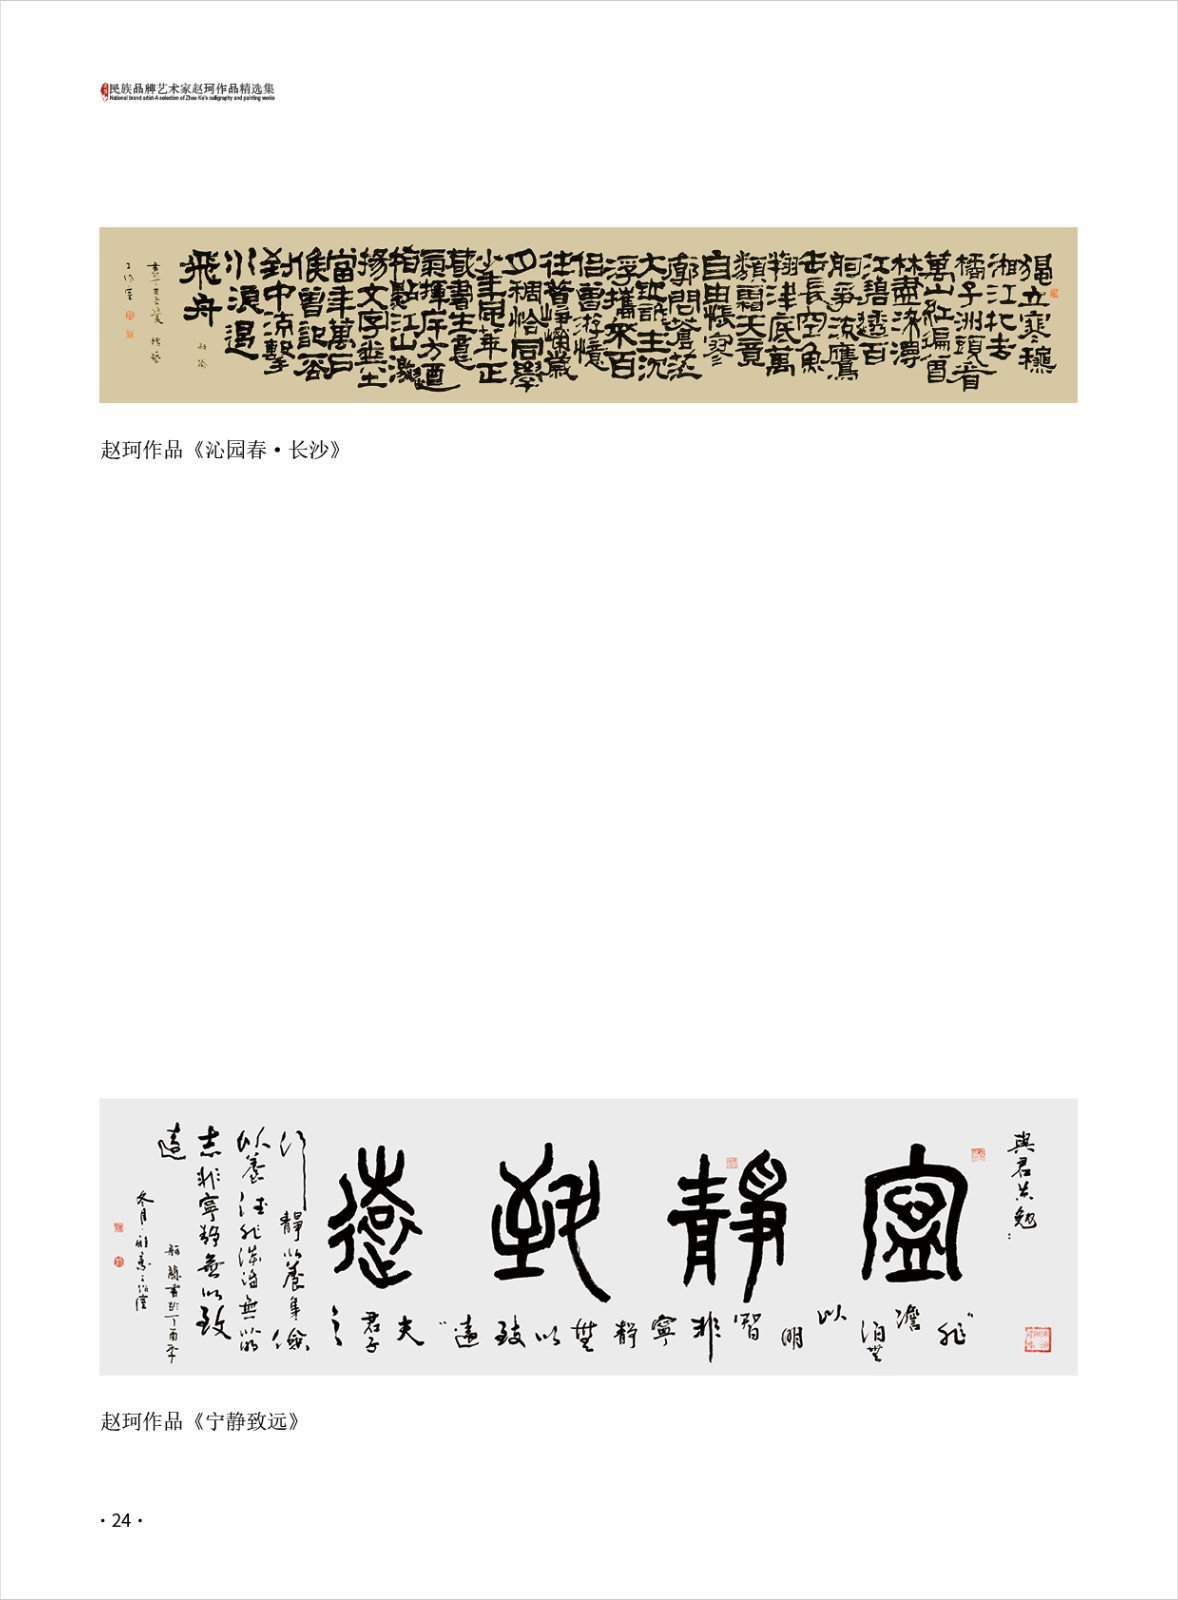 民族品牌艺术家赵珂作品精选集
National brand artist-A selection of Zhao Ke's calligraphy and painting works
獨立寒穐
湘江北去
橘子洲頭看
萬山紅遍層
林盡染漫
江碧透百
舸爭流鷹
击長空魚
翔淺底萬
類霜天競
自由悵寥
廓問蒼茫
大地誰主沉
浮攜來百
侶曾游憶
往昔崢嶸歲
月稠恰同學
少年風華正
茂書生意
氣揮斥方遒
指點江山激
揚文字糞土
當年萬戶
侯曾記否
到中流擊
水浪遏
飛舟
赵珂作品《沁园春·长沙》
與君共勉:
寧靜致遠
"非澹泊無以明智非寧靜無以致遠"夫君子之
行靜以養身儉
以養德非澹泊無以明
志非寧靜無以致
遠
書於丁酉年
冬月
赵珂作品《宁静致远》
·24·